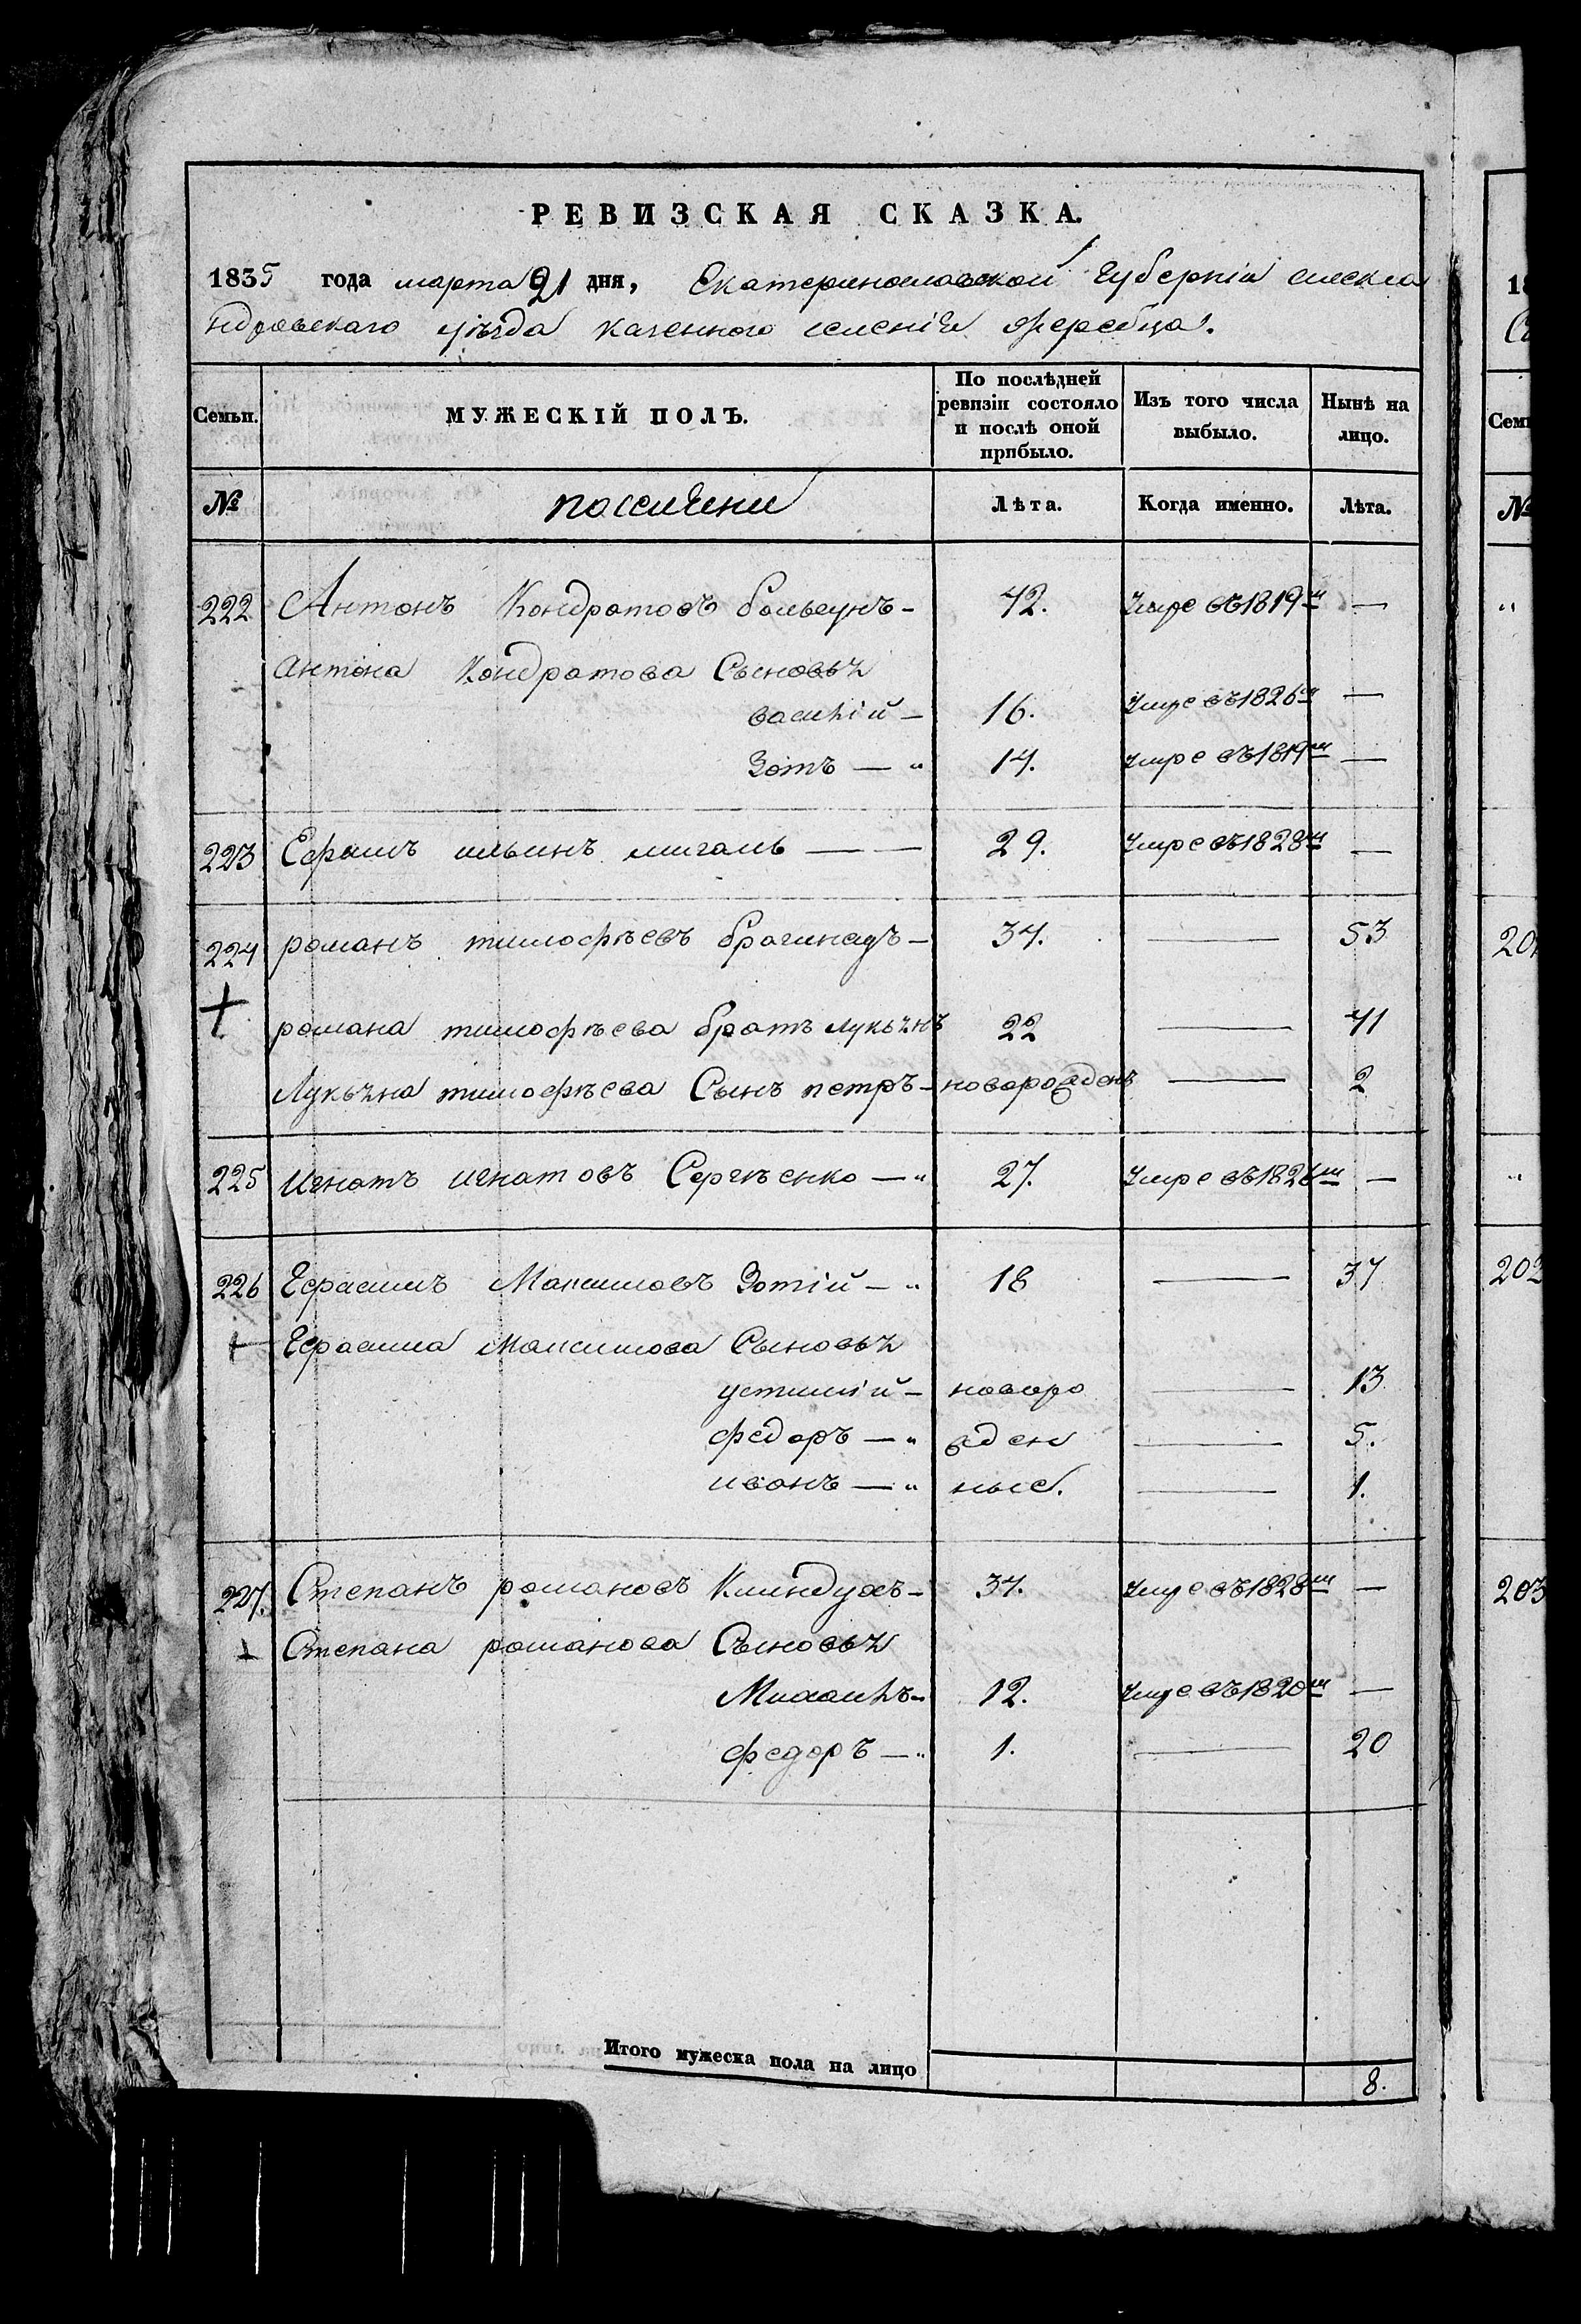 РЕВИЗСКАЯ СКАЗКА.
1835 года марта 21 дня, Екатеринославской Губерніи алекса
ндровскаго уѣзда казенного селенія Жеребца.
Семьи. МУЖЕСКІЙ ПОЛЪ. По послѣдней ревизіи состояло и послѣ оной прибыло. Изъ того числа выбыло. Нынѣ на лицо.
№ поселяни Лѣта. Когда именно. Лѣта.
222 Антонъ Кондратовъ – 42. Умре въ 1819м —
Антона Кондратова Сыновья
василій – 16. Умре въ 1826м —
Зотъ — „ 14. Умре въ 1819м —
223 Ефимъ ильинъ мигаль — — 29. Умре въ 1828м —
224 романъ тимофѣевъ – 34. — 53
+ романа тимофѣева братъ лукьянъ 22 — 41
Лукьяна тимофѣева Сынъ петръ – новорожденъ — 2
225 игнатъ игнатовъ Сергѣенко — „ 27. Умре въ 1826м —
226 Герасимъ Максимовъ Зотій – „ 18 — 37
+ Герасима Максимова Сыновья
устимій – новоро — 13
федоръ — „ жден — 5.
иванъ — „ ные. — 1.
227. Степанъ романовъ Клиндухъ – 34. Умре въ 1828м —
+ Степана романова Сыновья
Михаилъ – 12. Умре въ 1820м —
федоръ — „ 1. — 20
Итого мужеска пола на лицо 8.
18
Семь
№
„
20
„
202
203